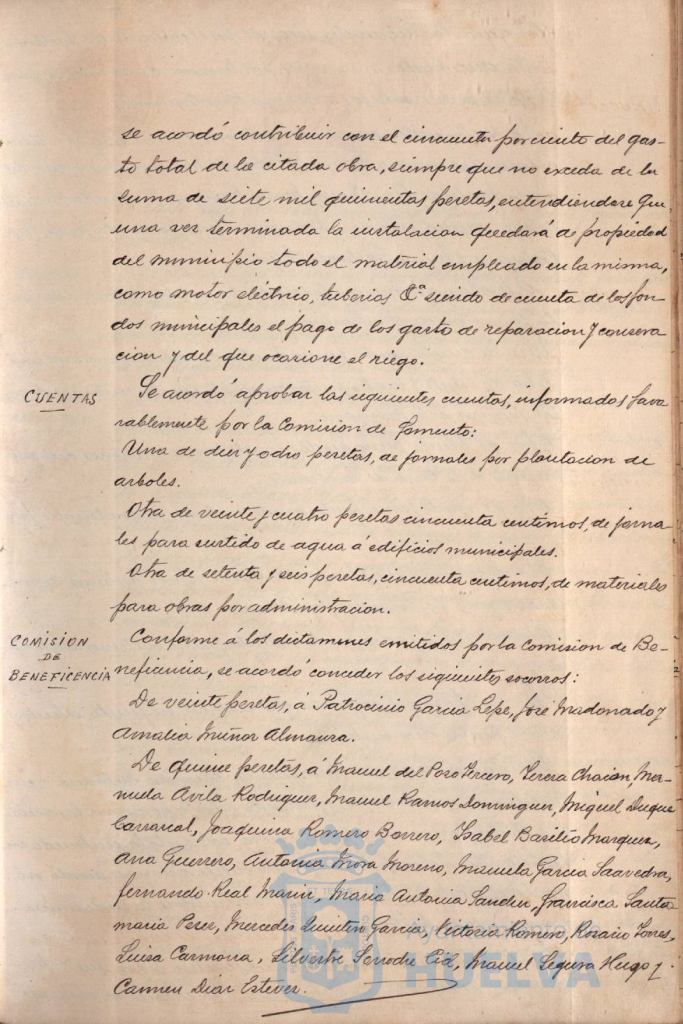 se acordó contribuir con el cincuenta por ciento del gas-
to total de la citada obra, siempre que no exceda de la
suma de siete mil quinientas pesetas, entendiendose que
una vez terminada la instalacion quedará de propiedad
del municipio todo el material empleado en la misma,
como motor eléctrico, tuberias &ª siendo de cuenta de los fon-
dos municipales el pago de los gasto de reparacion y conserva
cion y del que ocasione el riego.
CUENTAS
Se acordó aprobar las siguientes cuentas, informados favo
rablemente por la Comision de Fomento:
Una de diez y ocho pesetas, de jornales por plantacion de
arboles.
Otra de veinte y cuatro pesetas cincuenta centimos, de jorna-
les para surtido de agua á edificios municipales.
Otra de setenta y seis pesetas, cincuenta centimos, de materiales
para obras por administracion.
COMISION
DE
BENEFICENCIA
Conforme á los dictamenes emitidos por la Comision de Be-
neficencia, se acordó conceder los siguientes socorros:
De veinte pesetas, á Patrocinio Garcia Lepe, José Madonado y
Amalia Muñoz Almansa.
De quince pesetas, á Manuel del Pozo Tercero, Teresa Chaian, Ma-
nuela Avila Rodriguez, Manuel Ramos Dominguez, Miguel Duque
Carrascal, Joaquina Romero Borrero, Isabel Basilio Marquez,
Ana Guerrero, Antonia Mora Moreno, Manuela Garcia Saavedra,
Fernando Real Marin, Maria Antonia Sanchez, Francisca Santa
maria Perez, Mercedes Quintero Garcia, Victoria Romero, Rosario Torres,
Luisa Carmona, Silvestre Cid, Manuel Segura Hugo y
Carmen Diaz Estevez.
Ayuntamiento
HUELVA